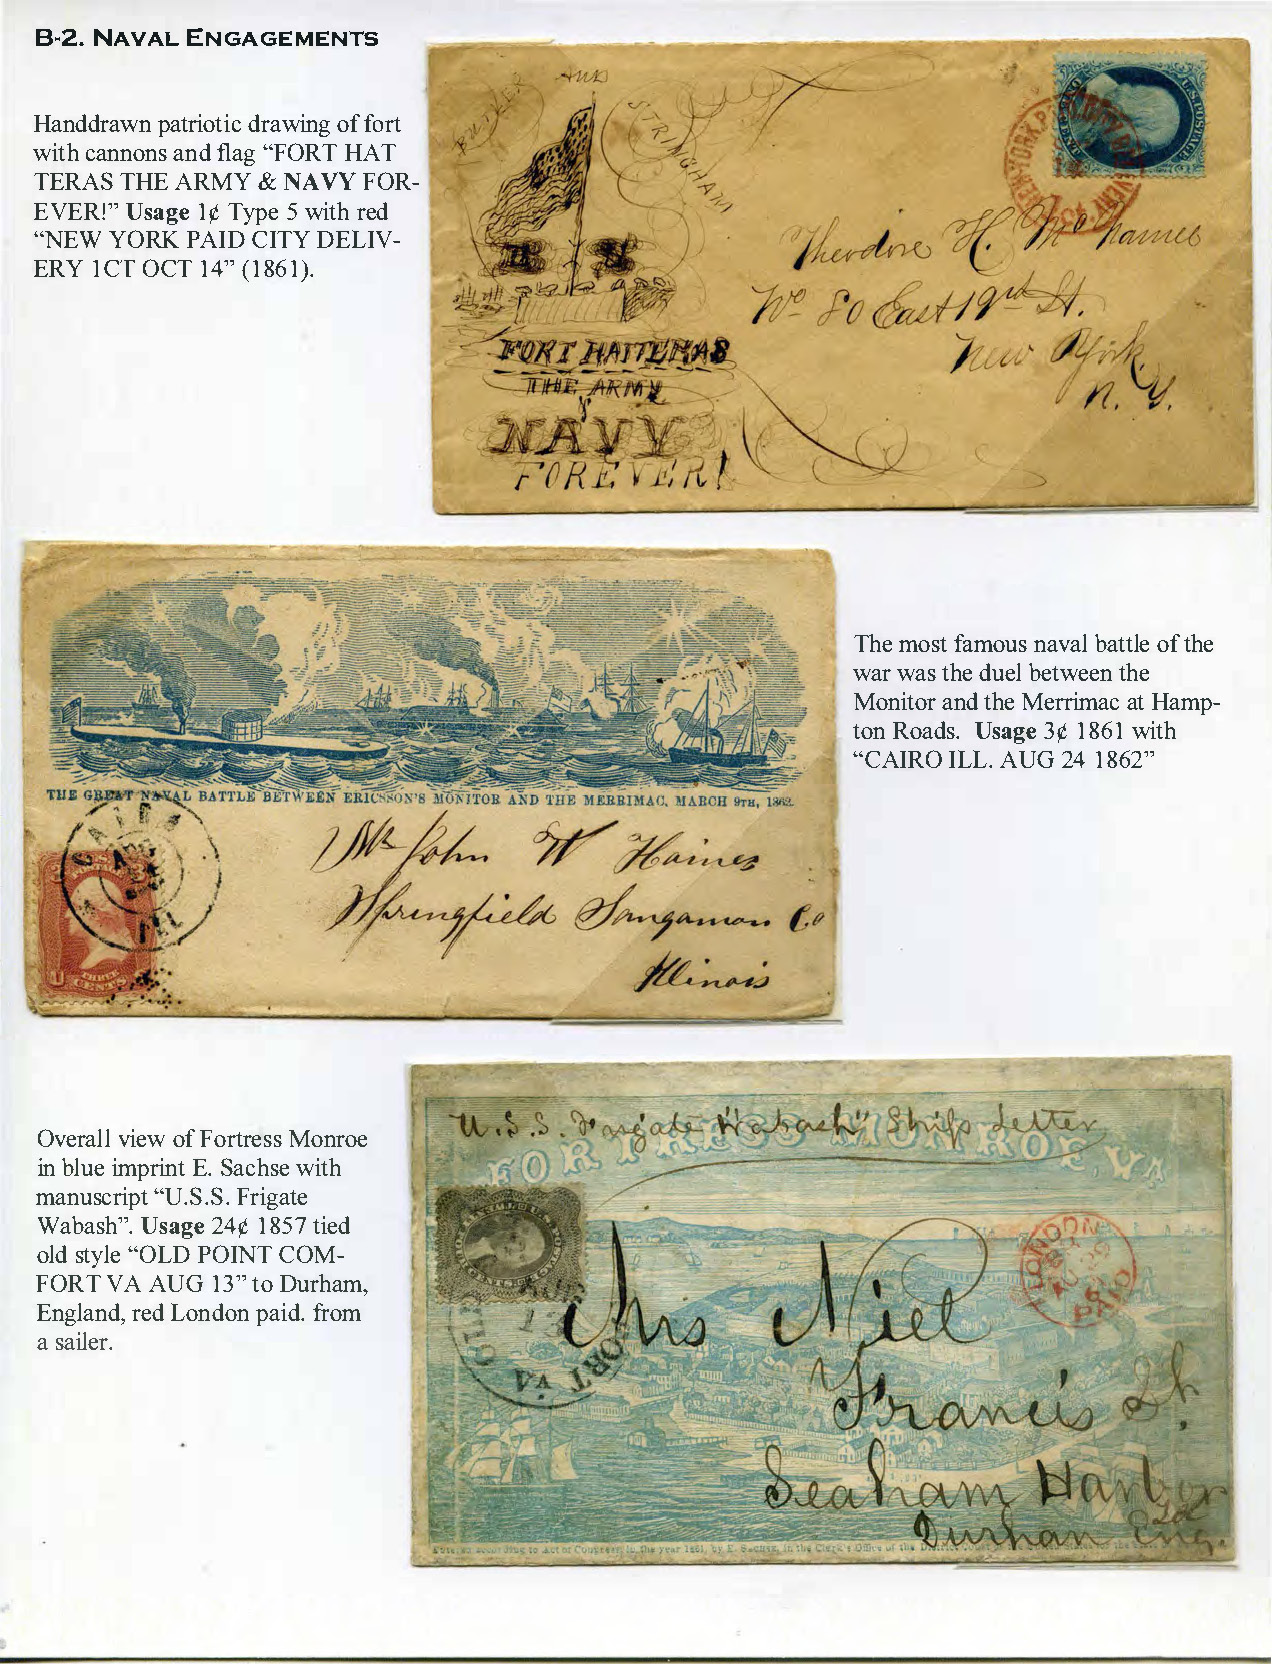 B-2. NAVAL ENGAGEMENTS
Handdrawn patriotic drawing of fort
with cannons and flag “FORT HAT
TERAS THE ARMY & NAVY FOR-
EVER!” Usage 1¢ Type 5 with red
“NEW YORK PAID CITY DELIV-
ERY 1CT OCT 14” (1861).
BUTLER
AND
STRINGHAM
FORT HATTERAS
THE ARMY
&
NAVY
FOREVER!
U.S. POSTAGE
Theodore H. Mc Namee
No 80 East 19th St.
New York
N. Y.
The most famous naval battle of the
war was the duel between the
Monitor and the Merrimac at Hamp-
ton Roads. Usage 3¢ 1861 with
“CAIRO ILL. AUG 24 1862”
THE GREAT NAVAL BATTLE BETWEEN ERICSSON'S MONITOR AND THE MERRIMAC, MARCH 9TH, 1862.
CAIRO
AUG
ILL
U.S.
POSTAGE
3
U
THREE
CENTS
Mr John W Haines
Springfield Sangamon Co
Illinois
Overall view of Fortress Monroe
in blue imprint E. Sachse with
manuscript “U.S.S. Frigate
Wabash”. Usage 24¢ 1857 tied
old style “OLD POINT COM-
FORT VA AUG 13” to Durham,
England, red London paid. from
a sailer.
U.S.S. Frigate "Wabash" Ships Letter
FORTRESS MONROE, VA
LONDON
PAID
OLD
FORT VA
Mrs Niel
Francis St.
Seaham Harbor
Durham Eng.
Entered according to Act of Congress, in the year 1861, by E. Sachse, in the Clerk's Office of the District Court of